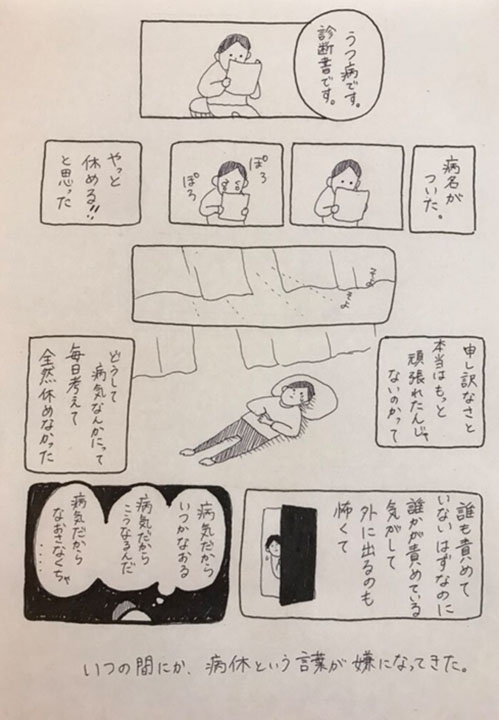 うつ病です。
診断書です。
病名が
ついた。
ぽろ
ぽろ
やっと
休める!!
と思った
そよ
そよ
申し訳なさと
本当はもっと
頑張れたんじゃ
ないのかって
どうして
病気なんかにって
毎日考えて
全然休めなかった
誰も責めて
いないはずなのに
誰かが責めている
気がして
外に出るのも
怖くて
病気だから
いつかなおる
病気だから
こうなるんだ
病気だから
なおさなくちゃ
.....
いつの間にか、病休という言葉が嫌になってきた。